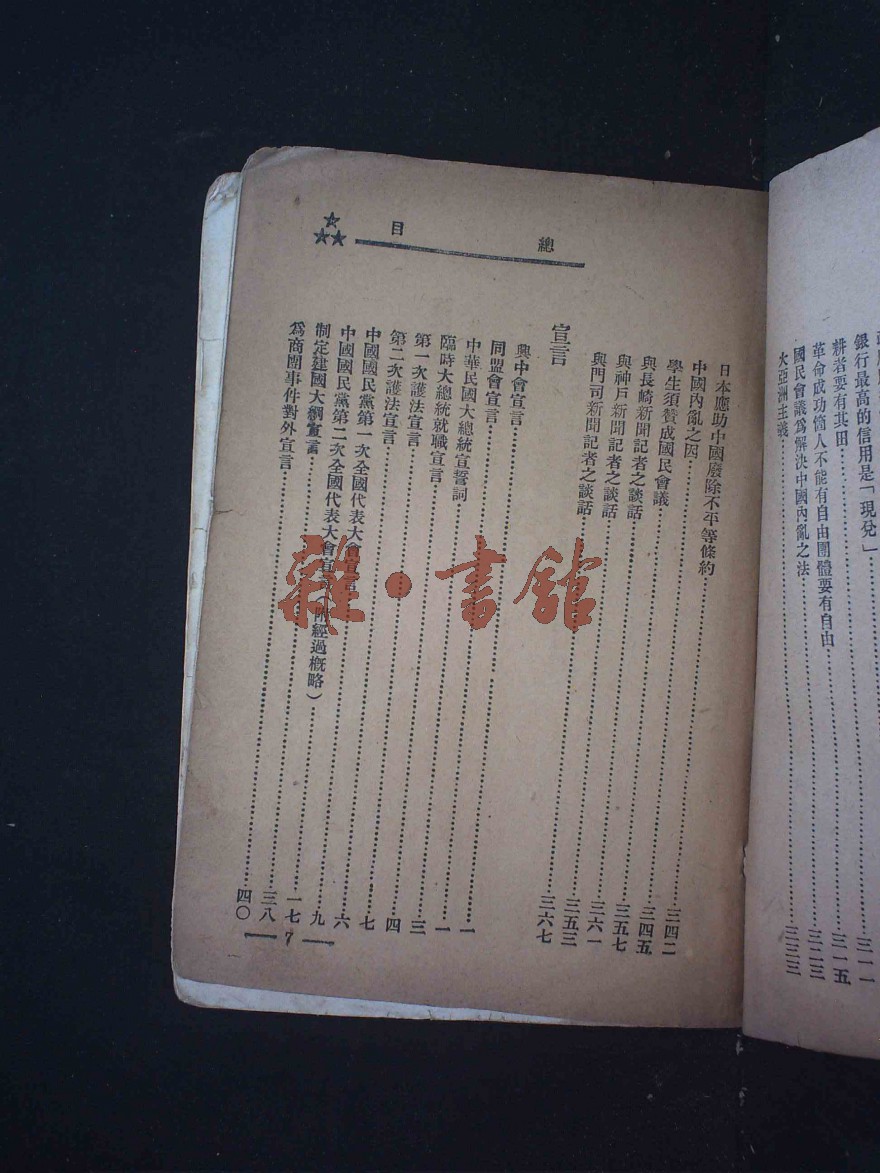 銀行最高的信用是「現兌」
耕者要有其田……三一一
革命成功箇人不能有自由團體要有自由……三一五
國民會議爲解決中國內亂之法……三二三
大亞洲主義……三三三
總目
日本應助中國廢除不平等條約……三四二
中國內亂之因……三四五
學生須贊成國民會議……三五七
與長崎新聞記者之談話……三六一
與神戶新聞記者之談話……三五三
與門司新聞記者之談話……三六七
宣言
興中會宣言……一
同盟會宣言……一
中華民國大總統宣誓詞……三
臨時大總統就職宣言……四
第一次護法宣言……七
第二次護法宣言……六
中國國民黨第一次全國代表大會宣言……九
中國國民黨第二次全國代表大會宣言(附經過概略)……一七
制定建國大綱宣言……三八
爲商團事件對外宣言……四〇
7
雜·書館